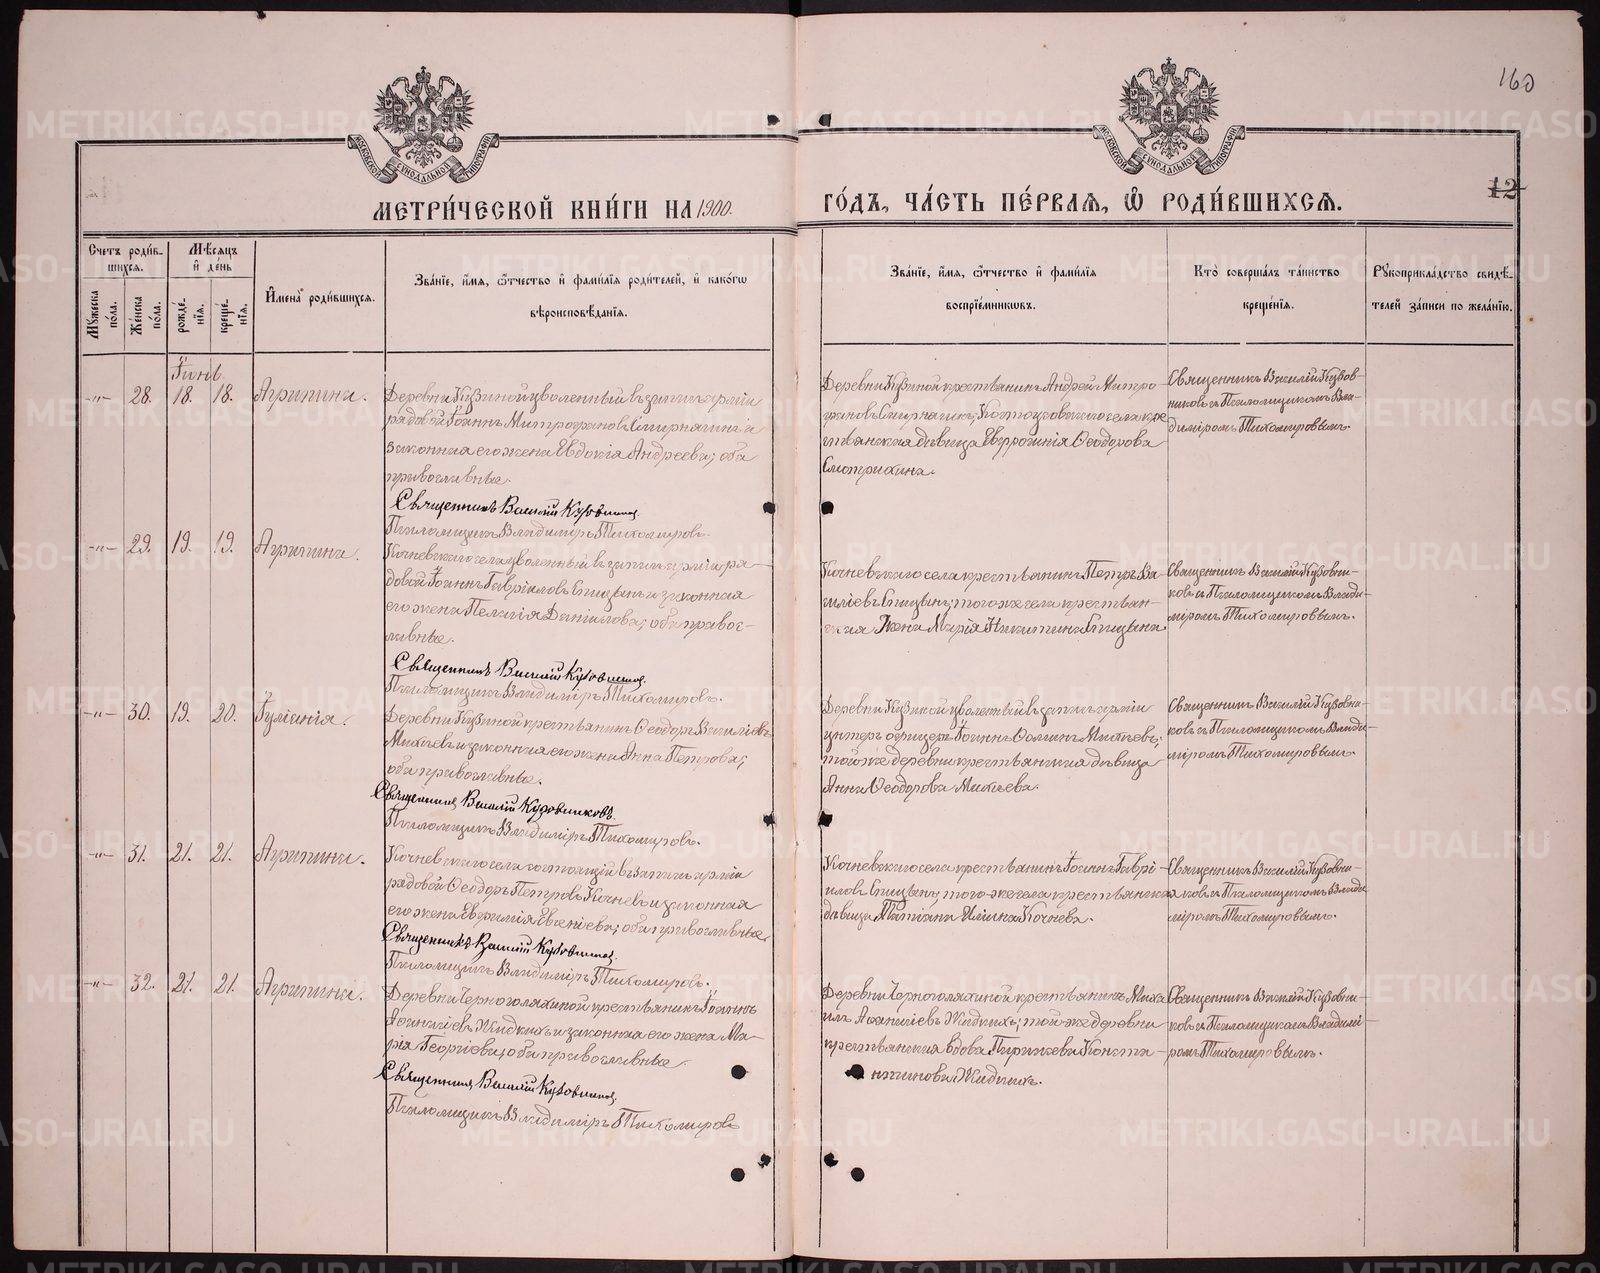 160
12
МОСКОВСКОЙ СѴНОДАЛЬНОЙ ТИПОГРАФІИ
МОСКОВСКОЙ СѴНОДАЛЬНОЙ ТИПОГРАФІИ
МЕТРИ́ЧЕСКОЙ КНИ́ГИ НА 1900.
ГО́ДЪ, ЧА́СТЬ ПЕ́РВАѦ, Ѡ҆ РОДИ́ВШИХСѦ.
Счетъ роди́в-
шихсѧ.
Мѣ́сѧцъ
и҆ де́нь
Мꙋ́жеска
по́ла.
Же́нска
по́ла.
рожде́-
нїѧ.
креще́-
нїѧ.
И҆мена̀ роди́вшихсѧ.
Зва́нїе, и҆́мѧ, ѻ҆́тчество и҆ фами́лїѧ роди́телей, и҆ како́гѡ
вѣроисповѣ́данїѧ.
Зва́нїе, и҆́мѧ, ѻ҆́тчество и҆ фами́лїѧ
воспрїе́мникѡвъ.
Кто̀ соверша́лъ та́инство
креще́нїѧ.
Рꙋкоприкла́дство свидѣ́-
телей за́писи по жела́нїю.
Іюнь.
-"- 28. 18. 18. Агрипина.
Деревни Кузиной уволенный въ запасъ арміи
рядовой Іоаннъ Митрофановъ Смирнягинъ и
законная его жена Евдокія Андреева; оба
православные.
Священникъ Василій Кузовниковъ.
Псаломщикъ Владиміръ Тихомировъ.
Деревни Кузиной крестьянинъ Андрей Митро-
фановъ Смирнягинъ; села кре-
стьянская дѣвица Евфросинія Ѳеодорова
Смотрихина.
Священникъ Василій Кузов-
никовъ съ Псаломщикомъ Вла-
диміромъ Тихомировымъ.
-"- 29. 19. 19. Агрипина.
Кочневскаго села уволенный въ запасъ арміи ря-
довой Іоаннъ Гавріиловъ Спицынъ и законная
его жена Пелагія Даніилова; оба правос-
лавные.
Священникъ Василій Кузовниковъ.
Псаломщикъ Владиміръ Тихомировъ.
Кочневскаго села крестьянинъ Петръ Ва-
силіевъ Спицынъ; того же села крестьян-
ская жена Марія Никитина Спицына.
Священникъ Василій Кузовни-
ковъ съ Псаломщикомъ Влади-
міромъ Тихомировымъ.
-"- 30. 19. 20. Іуліанія.
Деревни Кузиной крестьянинъ Ѳеодоръ Василіевъ
Михѣевъ и законная его жена Анна Петрова;
оба православные.
Священникъ Василій Кузовниковъ.
Псаломщикъ Владиміръ Тихомировъ.
Деревни Кузиной уволенный въ запасъ арміи
унтеръ офицеръ Іоаннъ Ѳоминъ Михѣевъ;
той же деревни крестьянская дѣвица
Анна Ѳеодорова Михѣева.
Священникъ Василій Кузовни-
ковъ съ Псаломщикомъ Влади-
міромъ Тихомировымъ.
-"- 31. 21. 21. Агрипина.
Кочневскаго села состоящій въ запасъ арміи
рядовой Ѳеодоръ Петровъ Кочневъ и законная
его жена Евфимія Евгеніева; оба православные.
Священникъ Василій Кузовниковъ.
Псаломщикъ Владиміръ Тихомировъ.
Кочневскаго села крестьянинъ Іоаннъ Гаврі-
иловъ Спицынъ; того же села крестьянская
дѣвица Татіана Иліина Кочнева.
Священникъ Василій Кузовни-
ковъ съ Псаломщикомъ Влади-
міромъ Тихомировымъ.
-"- 32. 21. 21. Агрипина.
Деревни Черноголяхиной крестьянинъ Іоаннъ
Аѳанасіевъ Жидкихъ и законная его жена Ма-
рія Георгіева, оба православные.
Священникъ Василій Кузовниковъ.
Псаломщикъ Владиміръ Тихомировъ
Деревни Черноголяхиной крестьянинъ Миха-
илъ Аѳанасіевъ Жидкихъ; той же деревни
крестьянская вдова Параскева Конста-
нтинова Жидкихъ.
Священникъ Василій Кузовни-
ковъ съ Псаломщикомъ Владимі-
ромъ Тихомировымъ.
METRIKI.GASO-URAL.RU